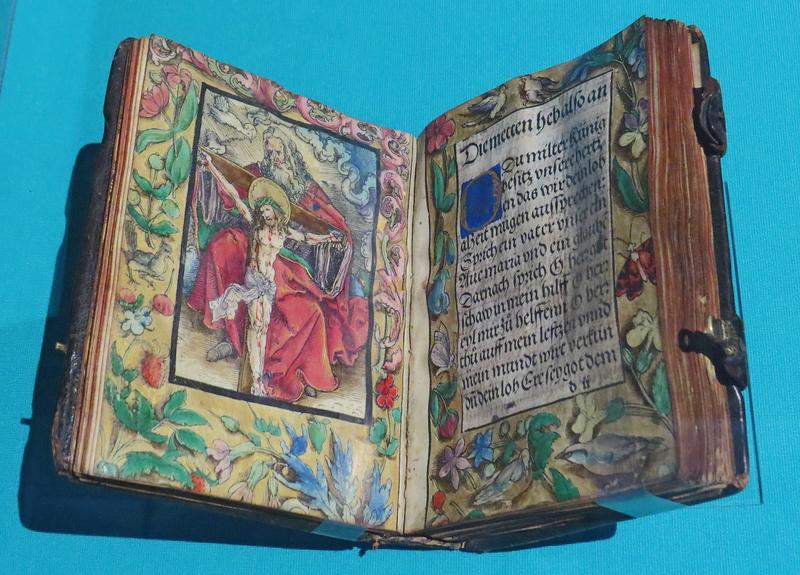 Die metten heb also an
Du milter künig
besitz vnsere hertz
en das wir dein lob
alzeit mügen aussprechen.
Sprich ein vater vnser ein
Aue maria vnd ein glaubē
Darnach sprich O herr got
schaw in mein hilff O herr
eyl mir zů helffenn O herr
thů auff mein lefftzen vnnd
mein mundt wirt verkün
dē dein lob Ere sey got dem